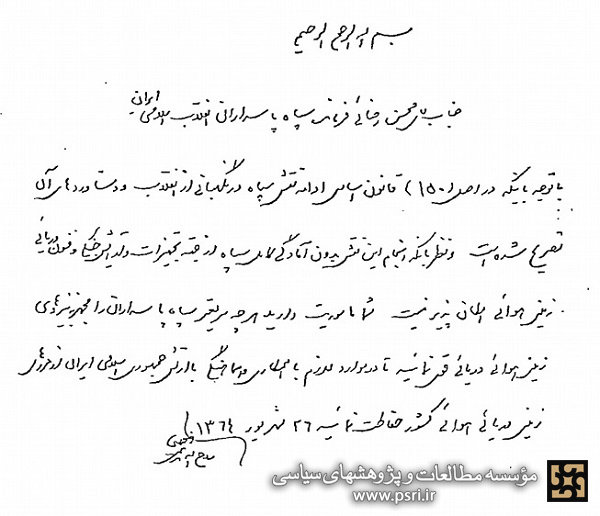 بسم الله الرحمن الرحیم
جناب آقای محسن رضائی فرمانده سپاه پاسداران انقلاب اسلامی ایران
با توجه باینکه در اصل (۱۵۰) قانون اساسی ادامه نقش سپاه در نگهبانی از انقلاب و دستاوردهای آن
تصریح شده است و نظر باینکه انجام این نقش بدون آمادگی کامل سپاه از جهت تجهیزات و آموزش جنگی و فنون دریائی
زمینی هوائی امکان پذیر نیست شما ماموریت دارید هر چه سریعتر سپاه پاسداران را مجهز به نیروهای
زمینی هوائی دریائی قوی نمائید تا در موارد لازم با همکاری و هماهنگی با ارتش جمهوری اسلامی ایران از مرزهای
زمینی دریائی هوائی کشور حفاظت نمائید ۲۶ شهریور ۱۳۶۴
روح الله الموسوی الخمینی
مؤسسه مطالعات و پژوهشهای سیاسی
www.psri.ir